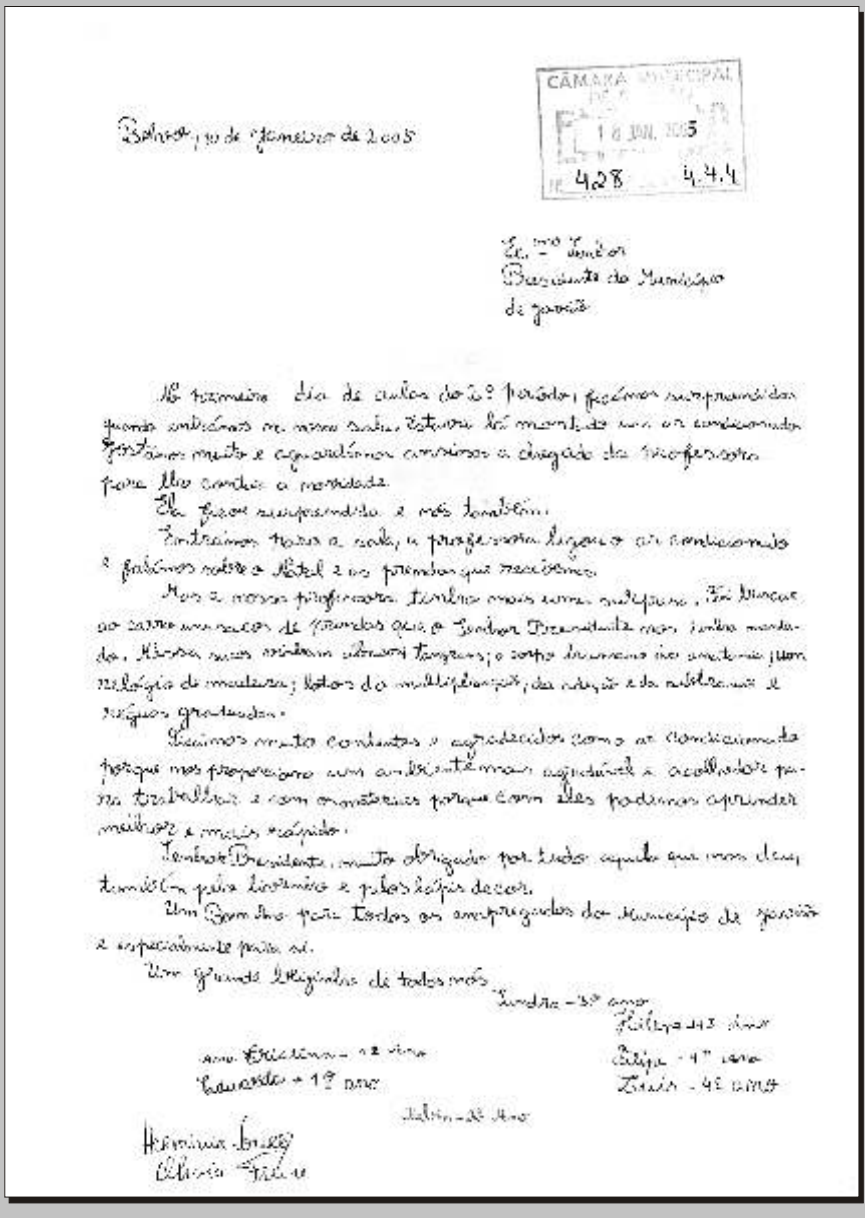 CÂMARA MUNICIPAL
18 JAN. 2005
428 4.4.4
10 de Janeiro de 2005
Ex.mo Senhor
Presidente do Município
de Gavião
No primeiro dia de aulas do 2º período, ficámos surpreendidos
quando entrámos na nossa sala. Estava lá montado um ar condicionado
Gostámos muito e aguardámos ansiosos a chegada da professora
para lhe contar a novidade.
Ela ficou surpreendida e nós também.
Entrámos para a sala, a professora ligou o ar condicionado
e falámos sobre o Natal e as prendas que recebemos.
Mas a nossa professora tinha mais uma surpresa. Foi buscar
ao carro uns sacos de prendas que o Senhor Presidente nos tinha manda-
do. Nesses sacos vinham tangrans; o corpo humano anatomia; um
relógio de madeira; lotos da multiplicação, da adição e da subtração e
réguas graduadas.
Ficámos muito contentes e agradecidos com o ar condicionado
porque nos proporciona um ambiente mais agradável e acolhedor pa-
ra trabalhar e com os materiais porque com eles podemos aprender
melhor e mais rápido.
Senhor Presidente, muito obrigado por tudo aquilo que nos deu,
também pelo livrinho e pelos lápis de cor.
Um Bom Ano para todos os empregados do Município de Gavião
e especialmente para si.
Um grande beijinho de todos nós
Sandra - 3º ano
Filipe - 4º Ano
Ana Cristina - 1º Ano
Filipa - 4º ano
Eduardo - 1º ano
Luís - 4º ano
Ano